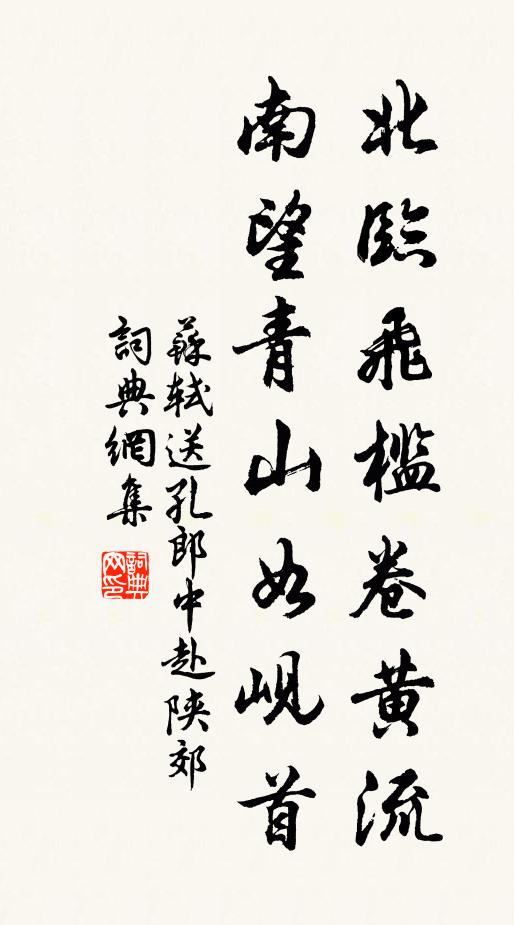 北臨飛檻卷黄流
南望青山如峴首
蘇軾送孔郎中赴陝郊
詞典網集
詞典網印